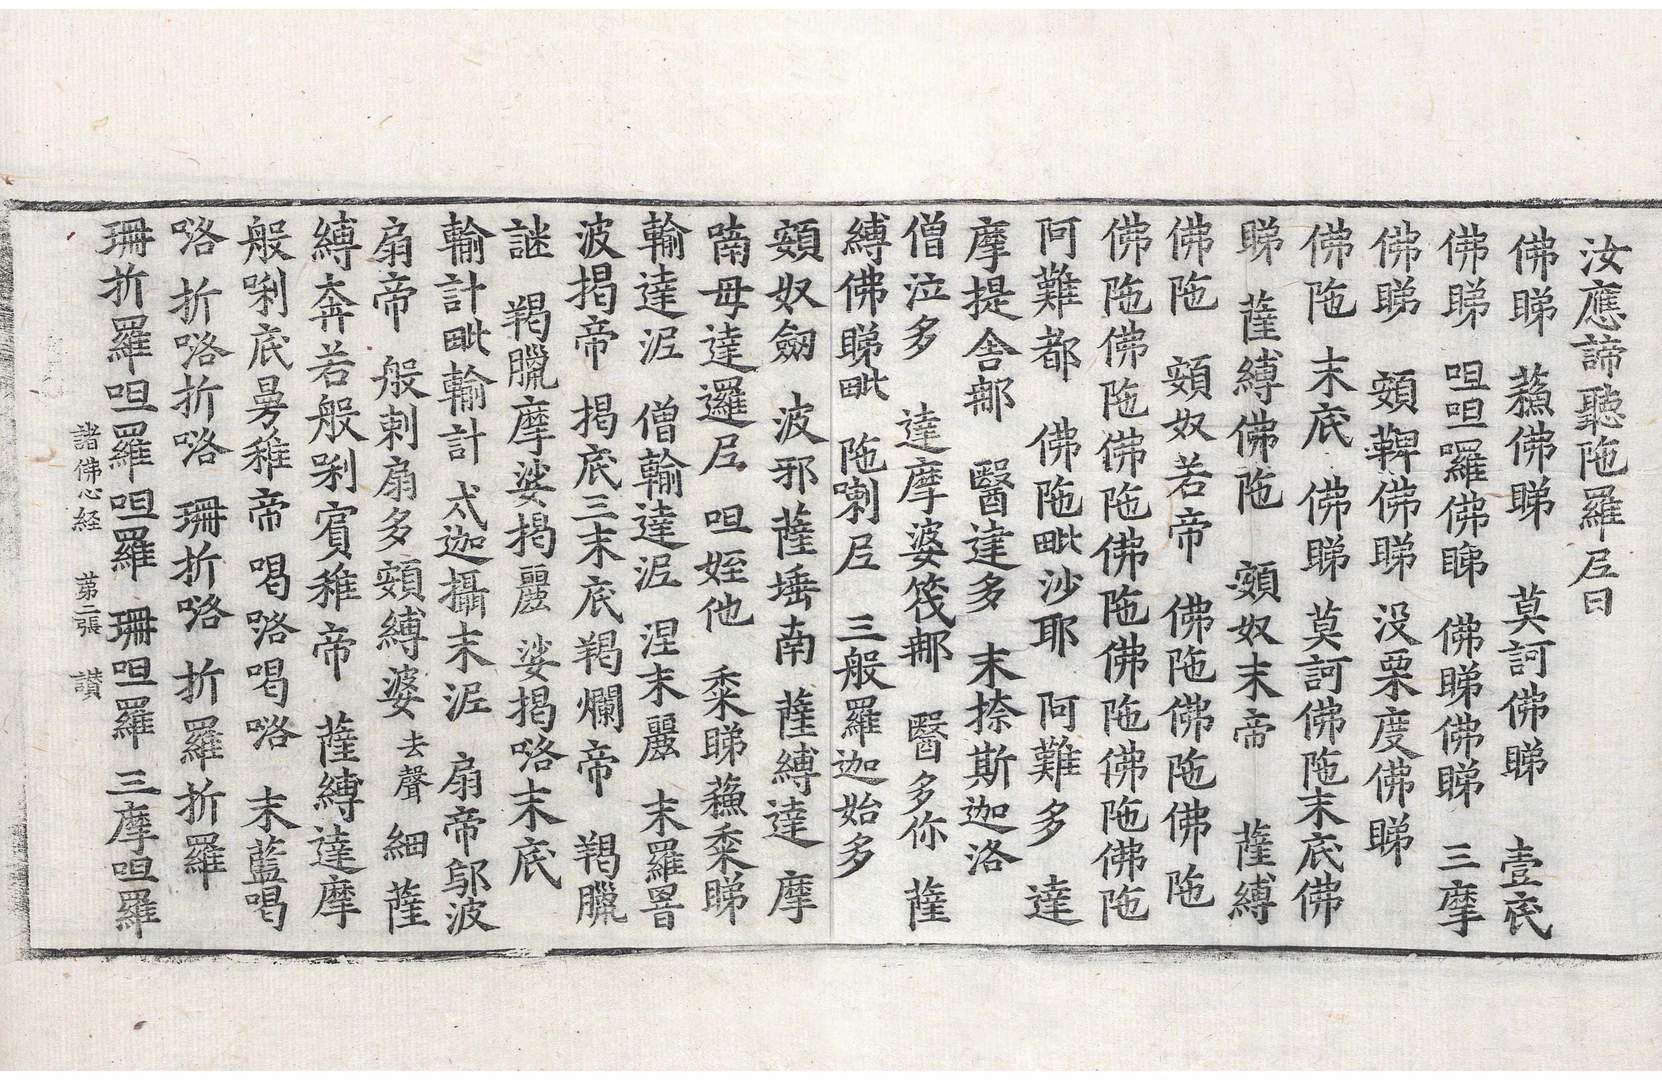 汝應諦聽陁羅𡰱曰
佛睇 蘓佛睇 莫訶佛睇 壹底
佛睇 呾呾囉佛睇 佛睇佛睇 三摩
佛睇 頞鞞佛睇 没栗度佛睇
佛陁 末底 佛睇 莫訶佛陁末底佛
睇 薩縛佛陁 頞奴末帝 薩縛
佛陁 頞奴若帝 佛陁佛陁佛陁
佛陁佛陁佛陁佛陁佛陁佛陁佛陁
阿難都 佛陁毗沙耶 阿難多 達
摩提舍郍 醫達多 末捺斯迦洛
僧泣多 達摩婆筏郍 醫多你 薩
縛佛睇毗 陁喇𡰱 三般羅迦始多
頞奴劒 波邪薩埵南 薩縛達摩
喃毋達邏𡰱 呾姪他 黍睇蘓黍睇
輸達泥 僧輸達泥 涅末麗 末羅署
波揭帝 揭底三末底羯爛帝 羯臘
謎 羯臘摩娑揭麗 娑揭咯末底
輸計毗輸計 弍迦攝末泥 扇帝鄔波
扇帝 般剌扇多頞縛婆去聲 細 薩
縛奔若般剡賓稚帝 薩縛達摩
般唎底旻稚帝 喝咯喝咯 末藍喝
咯 折咯折咯 珊折咯 折羅折羅
珊折羅呾羅呾羅 珊呾羅 三摩呾羅
諸佛心経 苐二張 讃